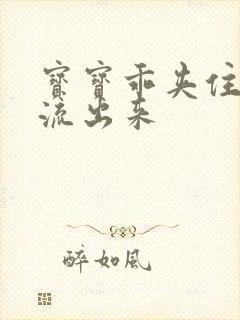 寶寶乖夹住
流出来
醉如風